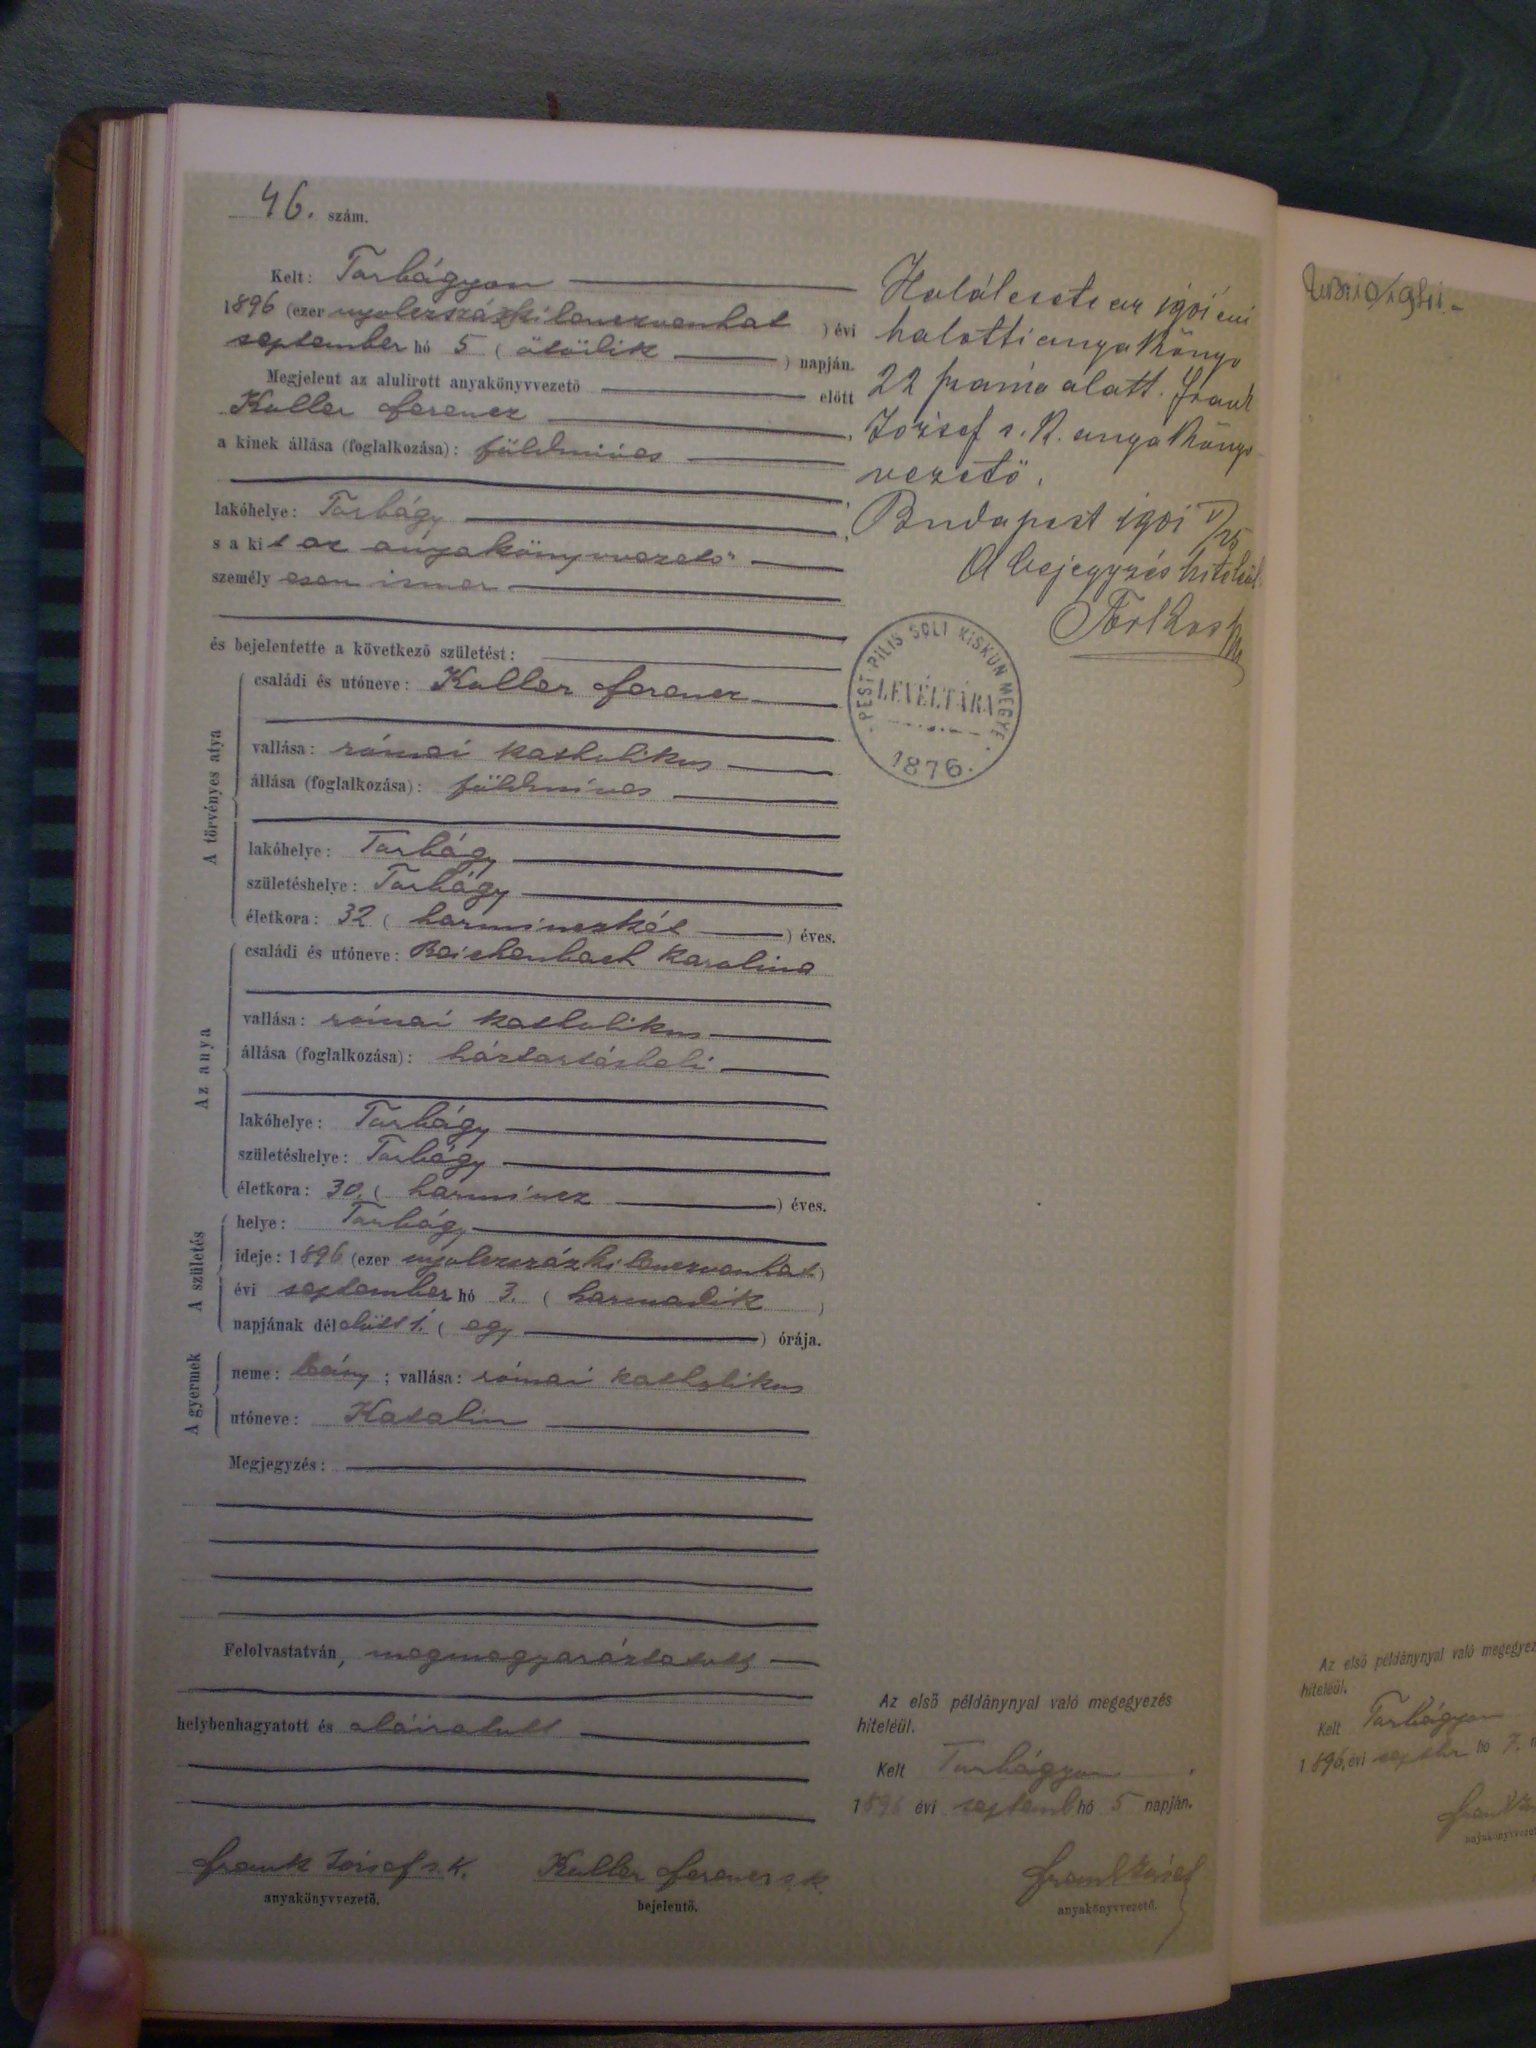 46. szám.
Kelt: Torbágyon
1896 (ezer nyolczszázkilenczvenhat ) évi
september hó 5 ( ötödik ) napján.
Megjelent az alulirott anyakönyvvezető előtt
Koller Ferencz ,
a kinek állása (foglalkozása): földmíves
,
lakóhelye: Torbágy ,
s a kit az anyakönyvvezető
személyesen ismer
és bejelentette a következő születést:
A törvényes atya
családi és utóneve: Koller Ferencz
vallása: római katholikus
állása (foglalkozása): földmíves
lakóhelye: Torbágy
születéshelye: Torbágy
életkora: 32 ( harminczkét ) éves.
Az anya
családi és utóneve: Reichenbach Karolina
vallása: római katholikus
állása (foglalkozása): háztartásbeli
lakóhelye: Torbágy
születéshelye: Torbágy
életkora: 30. ( harmincz ) éves.
A születés
helye: Torbágy
ideje: 1896 (ezer nyolczszázkilenczvenhat)
évi september hó 3. ( harmadik )
napjának délelőtt 1. ( egy ) órája.
A gyermek
neme: leány ; vallása: római katholikus
utóneve: Katalin
Megjegyzés:
Felolvastatván, megmagyaráztatott,
helybenhagyatott és aláiratott
Frank József s. k.
anyakönyvvezető.
Koller Ferencz s. k.
bejelentő.
Halálesete az 1901 évi
halotti anyakönyv
22 száma alatt. Frank
József s. k. anyakönyv
vezető.
Budapest 1901 V/25
A bejegyzés hiteléül
PEST-PILIS SOLT KISKUN MEGYE
LEVÉLTÁRA
1876.
Az első példánynyal való megegyezés
hiteléül.
Kelt Torbágyon ,
1896 évi septemb hó 5 napján.
Frank József
anyakönyvvezető.
Az első példánynyal való megegyez
hiteléül.
Kelt Torbágyon
1896, évi septbr hó 7. n
Frank
anyakönyvvezet